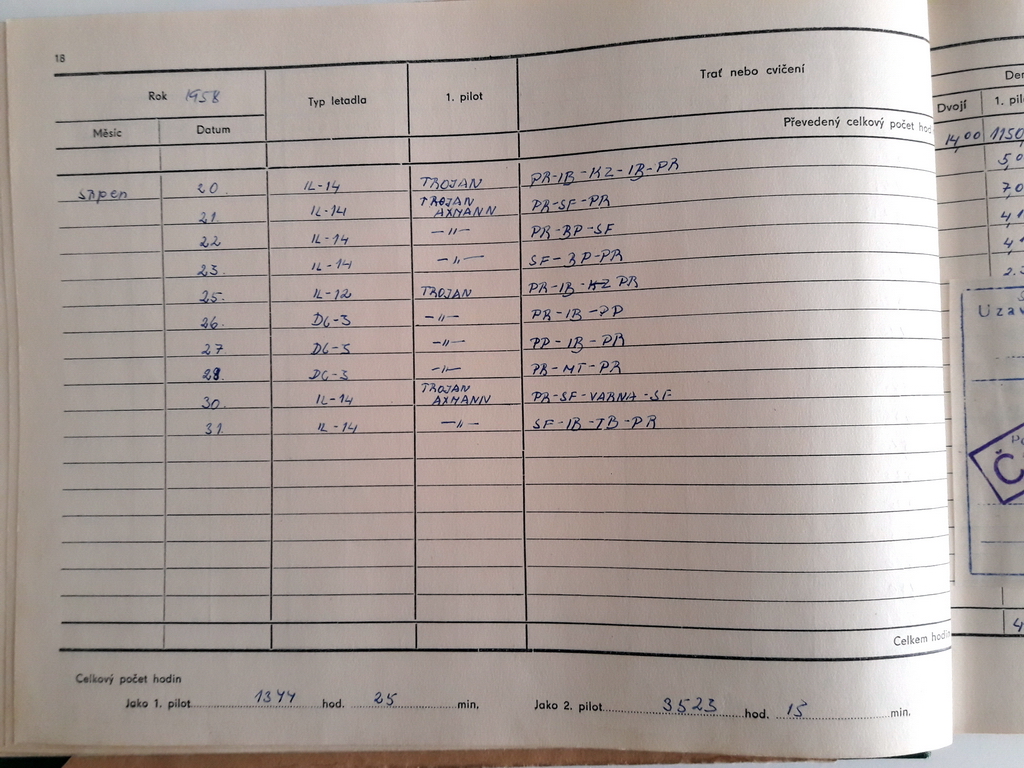 18
Rok 1958 Typ letadla 1. pilot Trať nebo cvičení
Měsíc Datum
Převedený celkový počet hod
srpen 20. IL-14 TROJAN PR-IB-KZ-IB-PR
21. IL-14 TROJAN AXMANN PR-SF-PR
22 IL-14 -"- PR-BP-SF
23. IL-14 -"- SF-BP-PR
25. IL-12 TROJAN PR-IB-KZ PR
26. DC-3 -"- PR-IB-PP
27 DC-3 -"- PP-IB-PR
28. DC-3 -"- PR-MT-PR
30. IL-14 TROJAN AXMANN PR-SF-VARNA-SF
31. IL-14 -"- SF-IB-TB-PR
Celkem hodin
Celkový počet hodin
Jako 1. pilot 1344 hod. 25 min. Jako 2. pilot 3523 hod. 15 min.
Den
Dvojí 1. pil
14,00 1150,
5,0
7,0
4,1
4,1
2.3
Uzav
Č
4